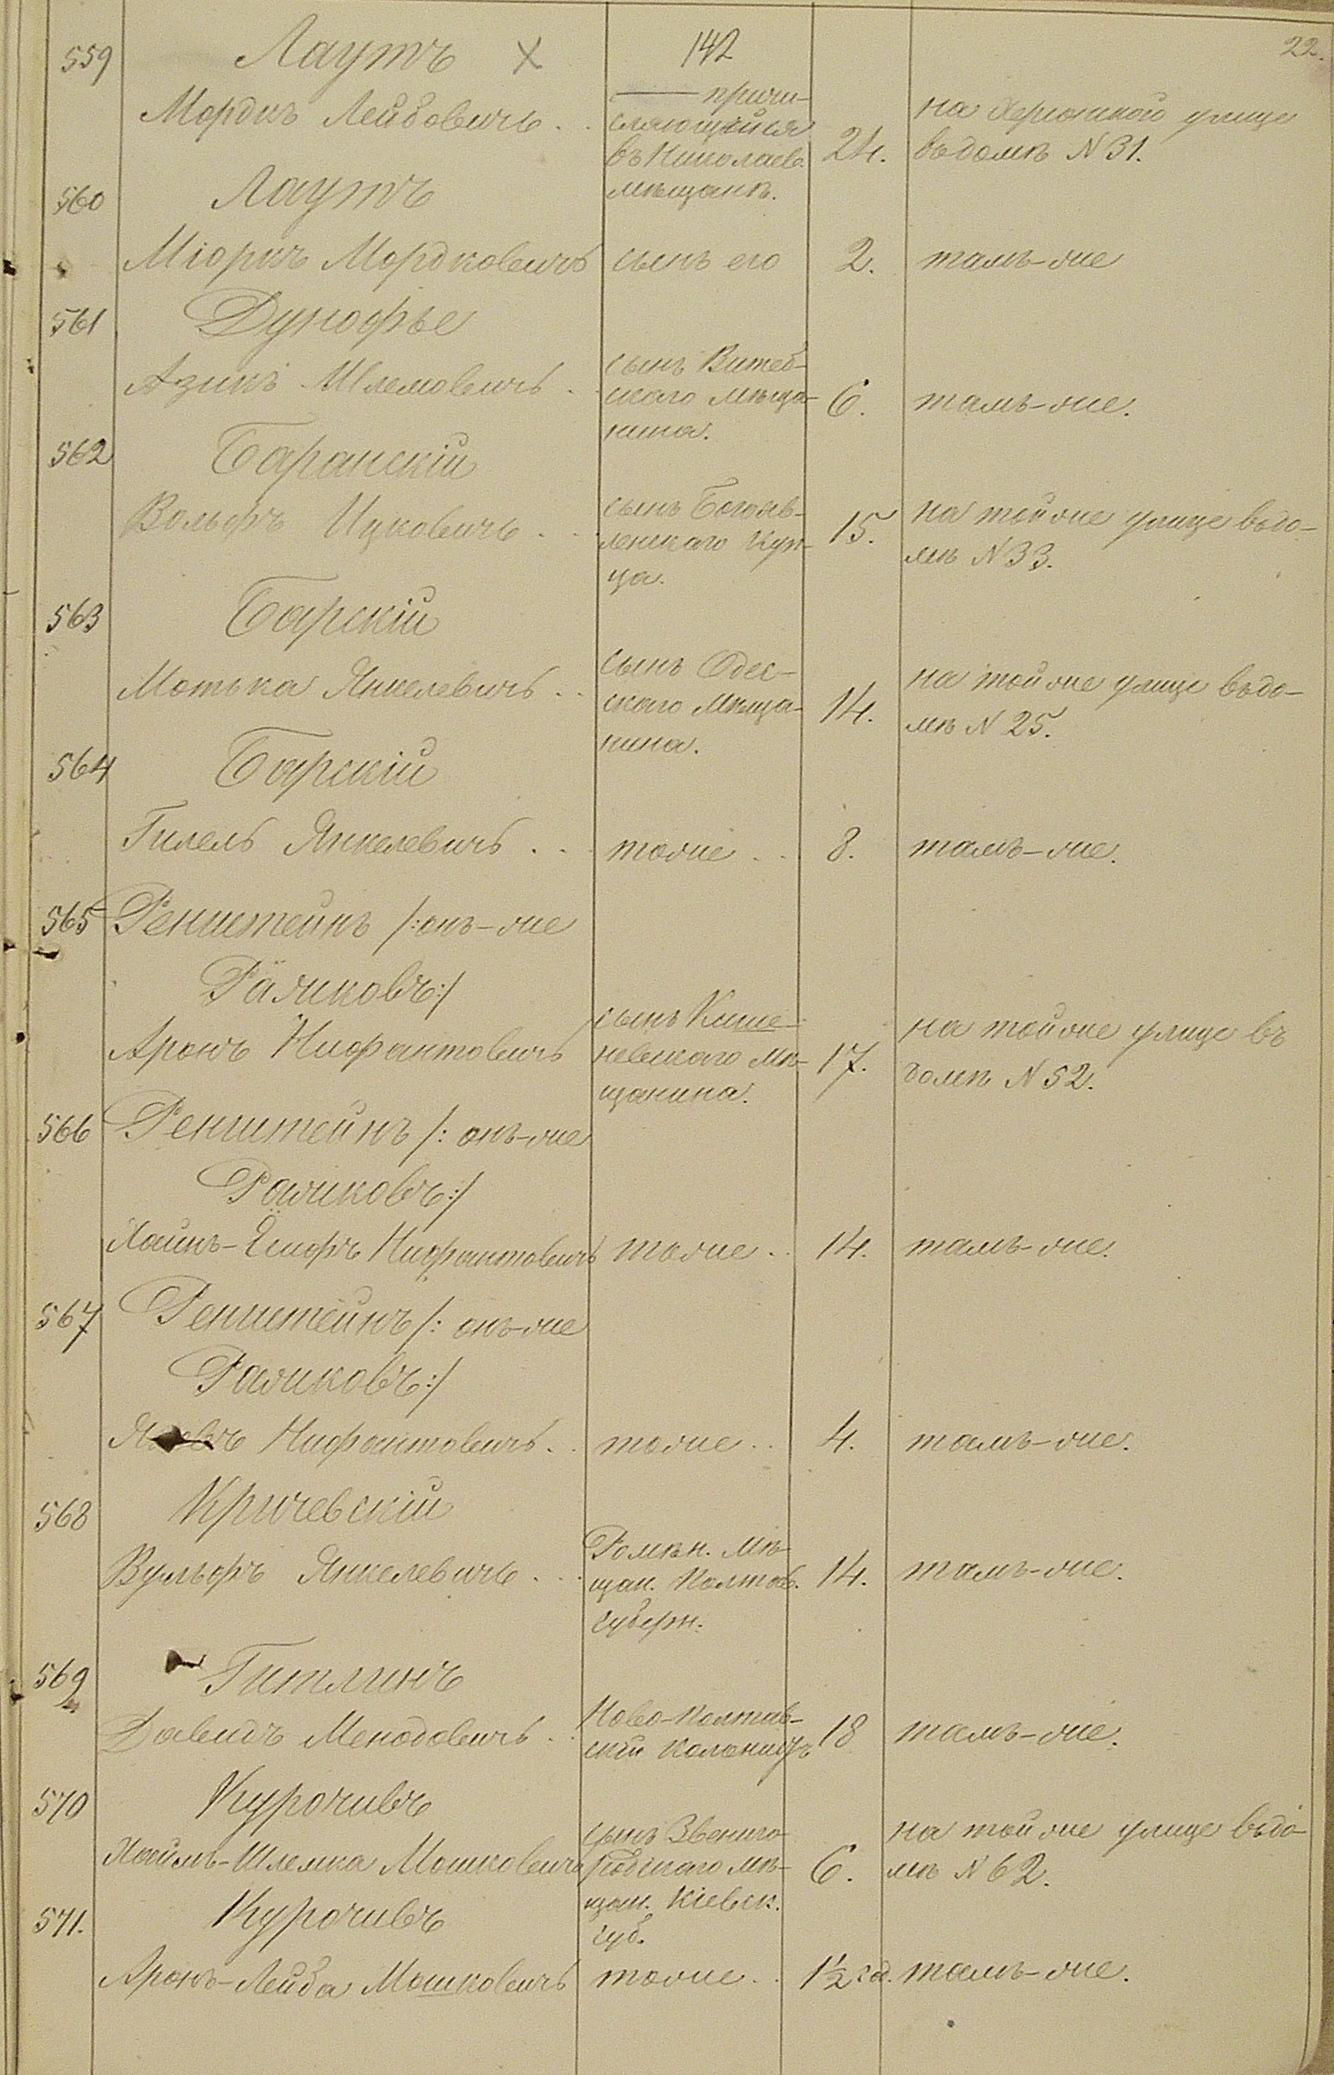 142
22.
559 Лаутъ ×
Мордкъ Лейбовичъ . . — причи-
сляющейся
въ Николаев.
мѣщанъ. 24. на Херсонской улице
въ домѣ N 31.
560 Лаутъ
Міоркъ Мордковичъ сынъ его 2. тамъ-же
561 Дунофье
Азикъ Шлемовичъ . сынъ Витеб-
скаго мѣща-
нина. 6. тамъ-же.
562 Баранскій
Вольфъ Ицковичъ . . сынъ Богояв-
ленскаго Куп-
ца. 15. на той же улице въ до-
мѣ N 33.
563 Барскій
Мотька Янкелевичъ . . сынъ Одес-
скаго мѣща-
нина. 14. на той же улице въ до-
мѣ N 25.
564 Барскій
Гилель Янкелевичъ . . тоже . . 8. тамъ-же.
565 Ренштейнъ /: онъ-же
Раликовъ:/
Аронъ Нифантовичъ сынъ Кише-
невскаго мѣ-
щанина. 17. на той же улице въ
домѣ N 52.
566 Ренштейнъ /: онъ-же
Раликовъ:/
Хаимъ-Іосифъ Нифантовичъ тоже . . 14. тамъ-же.
567 Ренштейнъ /: онъ-же
Раликовъ:/
Нифантовичъ . . тоже . . 4. тамъ-же.
568 Кричевскій
Вульфъ Янкелевичъ . . . Ромен. мѣ-
щан. Полтов.
губерн. 14. тамъ-же.
569 Гитлинъ
Давидъ Менодовичъ . . Ново-Полтав-
скій колонистъ 18 тамъ-же.
570 Курочивъ
Хаимъ-Шлемка Мошковичъ сынъ Звениго-
родскаго мѣ-
щан. Кіевск.
губ. 6. на той же улице въ до-
мѣ N 62.
571. Курочивъ
Аронъ-Лейба Мошковичъ тоже . . 1½ год. тамъ-же.